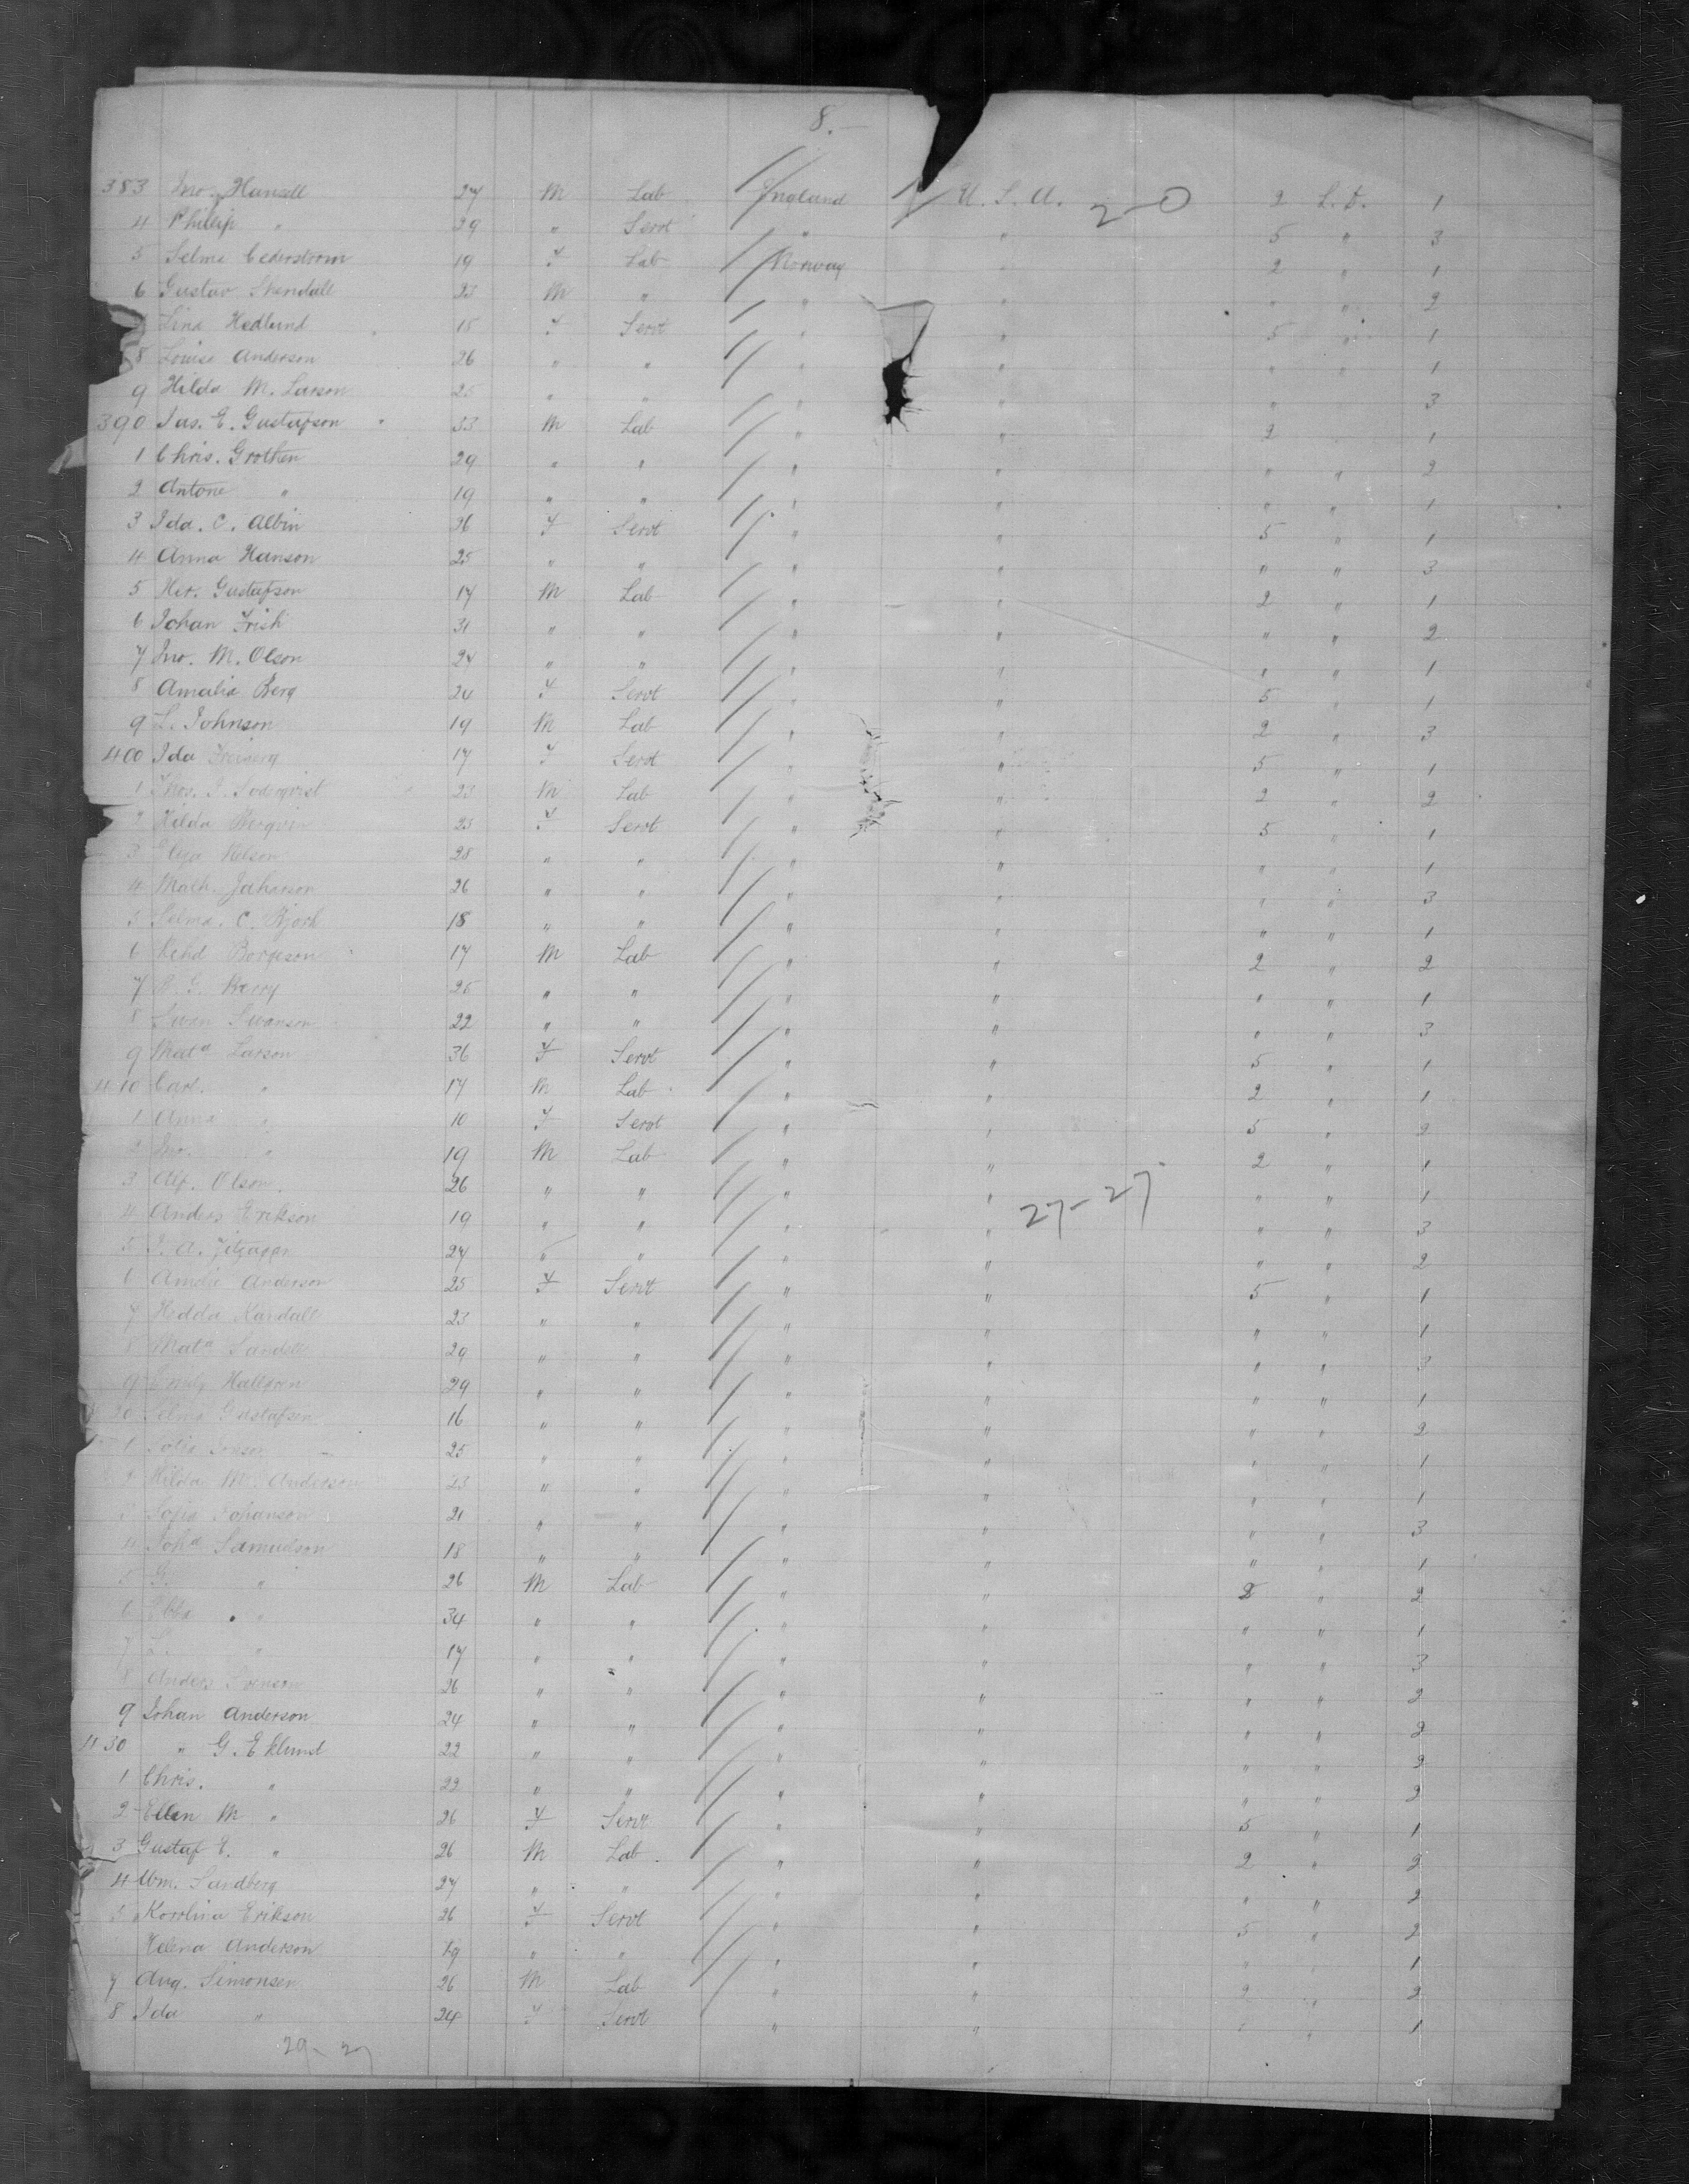 8.—
383 Jno. Hansell 27 M Lab England U. S. A. 2-0 2 L. D. 1
4 Philip " 29 " Servt " " 5 " 3
5 Selma Cederstrom 19 F Lab Norway 2 " 1
6 Gustav 23 M " " " " " 2
Lina Hedlund 15 F Servt " " 5 " 1
8 Louisa Anderson 26 " " " " " " 1
9 Hilda M. Larson 25 " " " " " 3
390 Jas. E. Gustafson 33 M Lab " " 2 1
1 Chris. Grothen 29 " " " " " " 2
2 Antone " 19 " " " " " " 1
3 Ida. C. Albin 26 F Servt " " 5 " 1
4 Anna Hanson 25 " " " " " " 3
5 Her. Gustafson 17 M Lab " " 2 " 1
6 Johan Frish 31 " " " " " " 2
7 Jno. M. Olson 27 " " " " " " 1
8 Amalia Berg 24 F Servt " " 5 " 1
9 L. Johnson 19 M Lab " " 2 " 3
400 Ida 17 F Servt " " 5 " 1
1 23 M Lab " " 2 " 2
2 Hilda 23 F Servt " " 5 " 1
3 Nelson 28 " " " " " " 1
4 Math. Johanson 26 " " " " " " 3
5 Selma. C. Bjork 18 " " " " " " 1
6 Borgeson 17 M Lab " " 2 " 2
7 Berry 25 " " " " " " 1
8 Swan Swanson 22 " " " " " " 3
9 Mata Larson 36 F Servt " " 5 " 1
410 Carl. " 17 M Lab " " 2 " 1
1 Anna " 10 F Servt " " 5 " 2
2 Jno. " 19 M Lab " " 2 " 1
3 Alf. Olson. 26 " " " " " " 1
27-27
4 Anders Erikson 19 " " " " " " 3
5 J. A. 27 " " " " " " 2
6 Anderson 25 F Servt " " 5 " 1
7 Hedda 23 " " " " " " 1
8 Mata Sandell 29 " " " " " " 3
9 Emily 29 " " " " " " 1
20 Selma Gustafsen 16 " " " " " " 2
1 25 " " " " " " 1
2 Hilda M. Anderson 23 " " " " " " 1
Sofia Johanson 21 " " " " " " 3
4 Joha Samuelson 18 " " " " " " 1
5 G. " 26 M Lab " " 2 " 2
6 " 34 " " " " " " 1
7 " 17 " " " " " " 3
8 Anders 26 " " " " " " 2
9 Johan Anderson 24 " " " " " " 2
430 " G. Eklund 22 " " " " " " 2
1 Chris. " 22 " " " " " " 2
2 Ellen M " 26 F Servt " " 5 " 1
3 Gustaf E. " 26 M Lab " " 2 " 2
4 Wm. Sandberg 27 " " " " " " 2
5 Karolina Erikson 26 F Servt " " 5 " 2
Helena Anderson 19 " " " " " " 1
7 Aug. Simonsen 26 M Lab " " 2 " 2
8 Ida " 24 F Servt " " " " 1
29-27